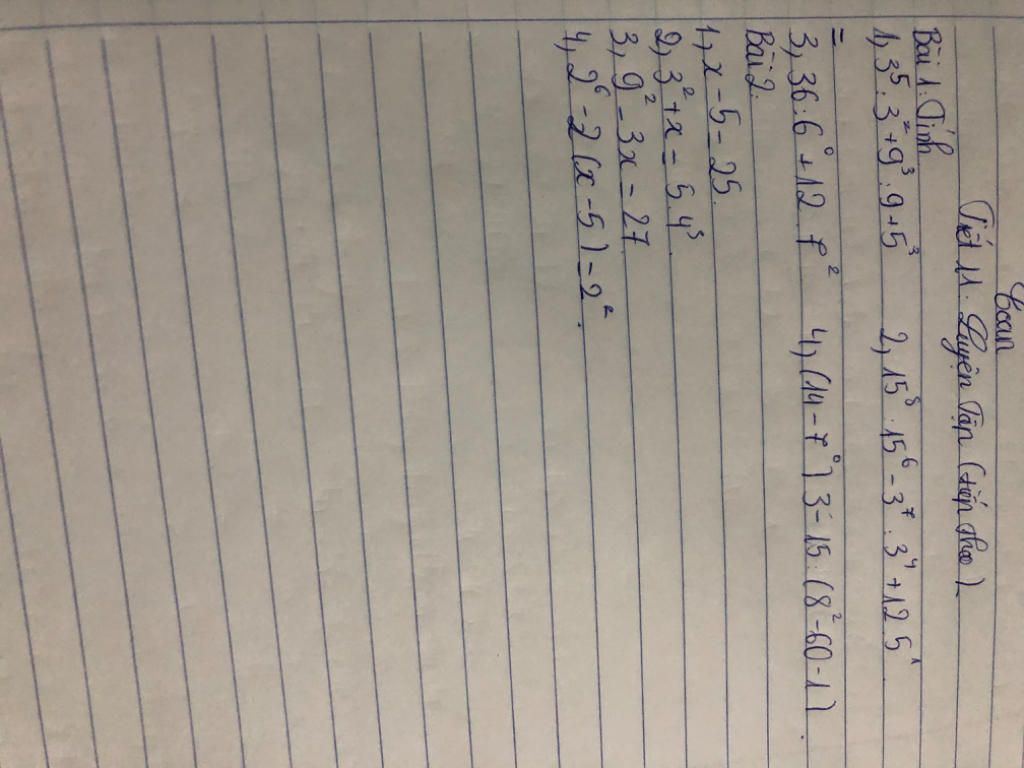 Toán
Tiết 11. Luyện Tập (tiếp theo)
Bài 1. Tính
1, 3⁵ : 3² + 9³ : 9 + 5³ 2, 15⁸ : 15⁶ - 3⁷ : 3⁴ + 12.5¹
=
3, 36.6⁰ + 12.7² 4, (14 - 7⁰).3 - 15.(8² - 60 - 1).
Bài 2.
1, x - 5 = 25.
2, 3² + x = 5.4³
3, 9² - 3x = 27.
4, 2⁶ - 2(x - 5) = 2².